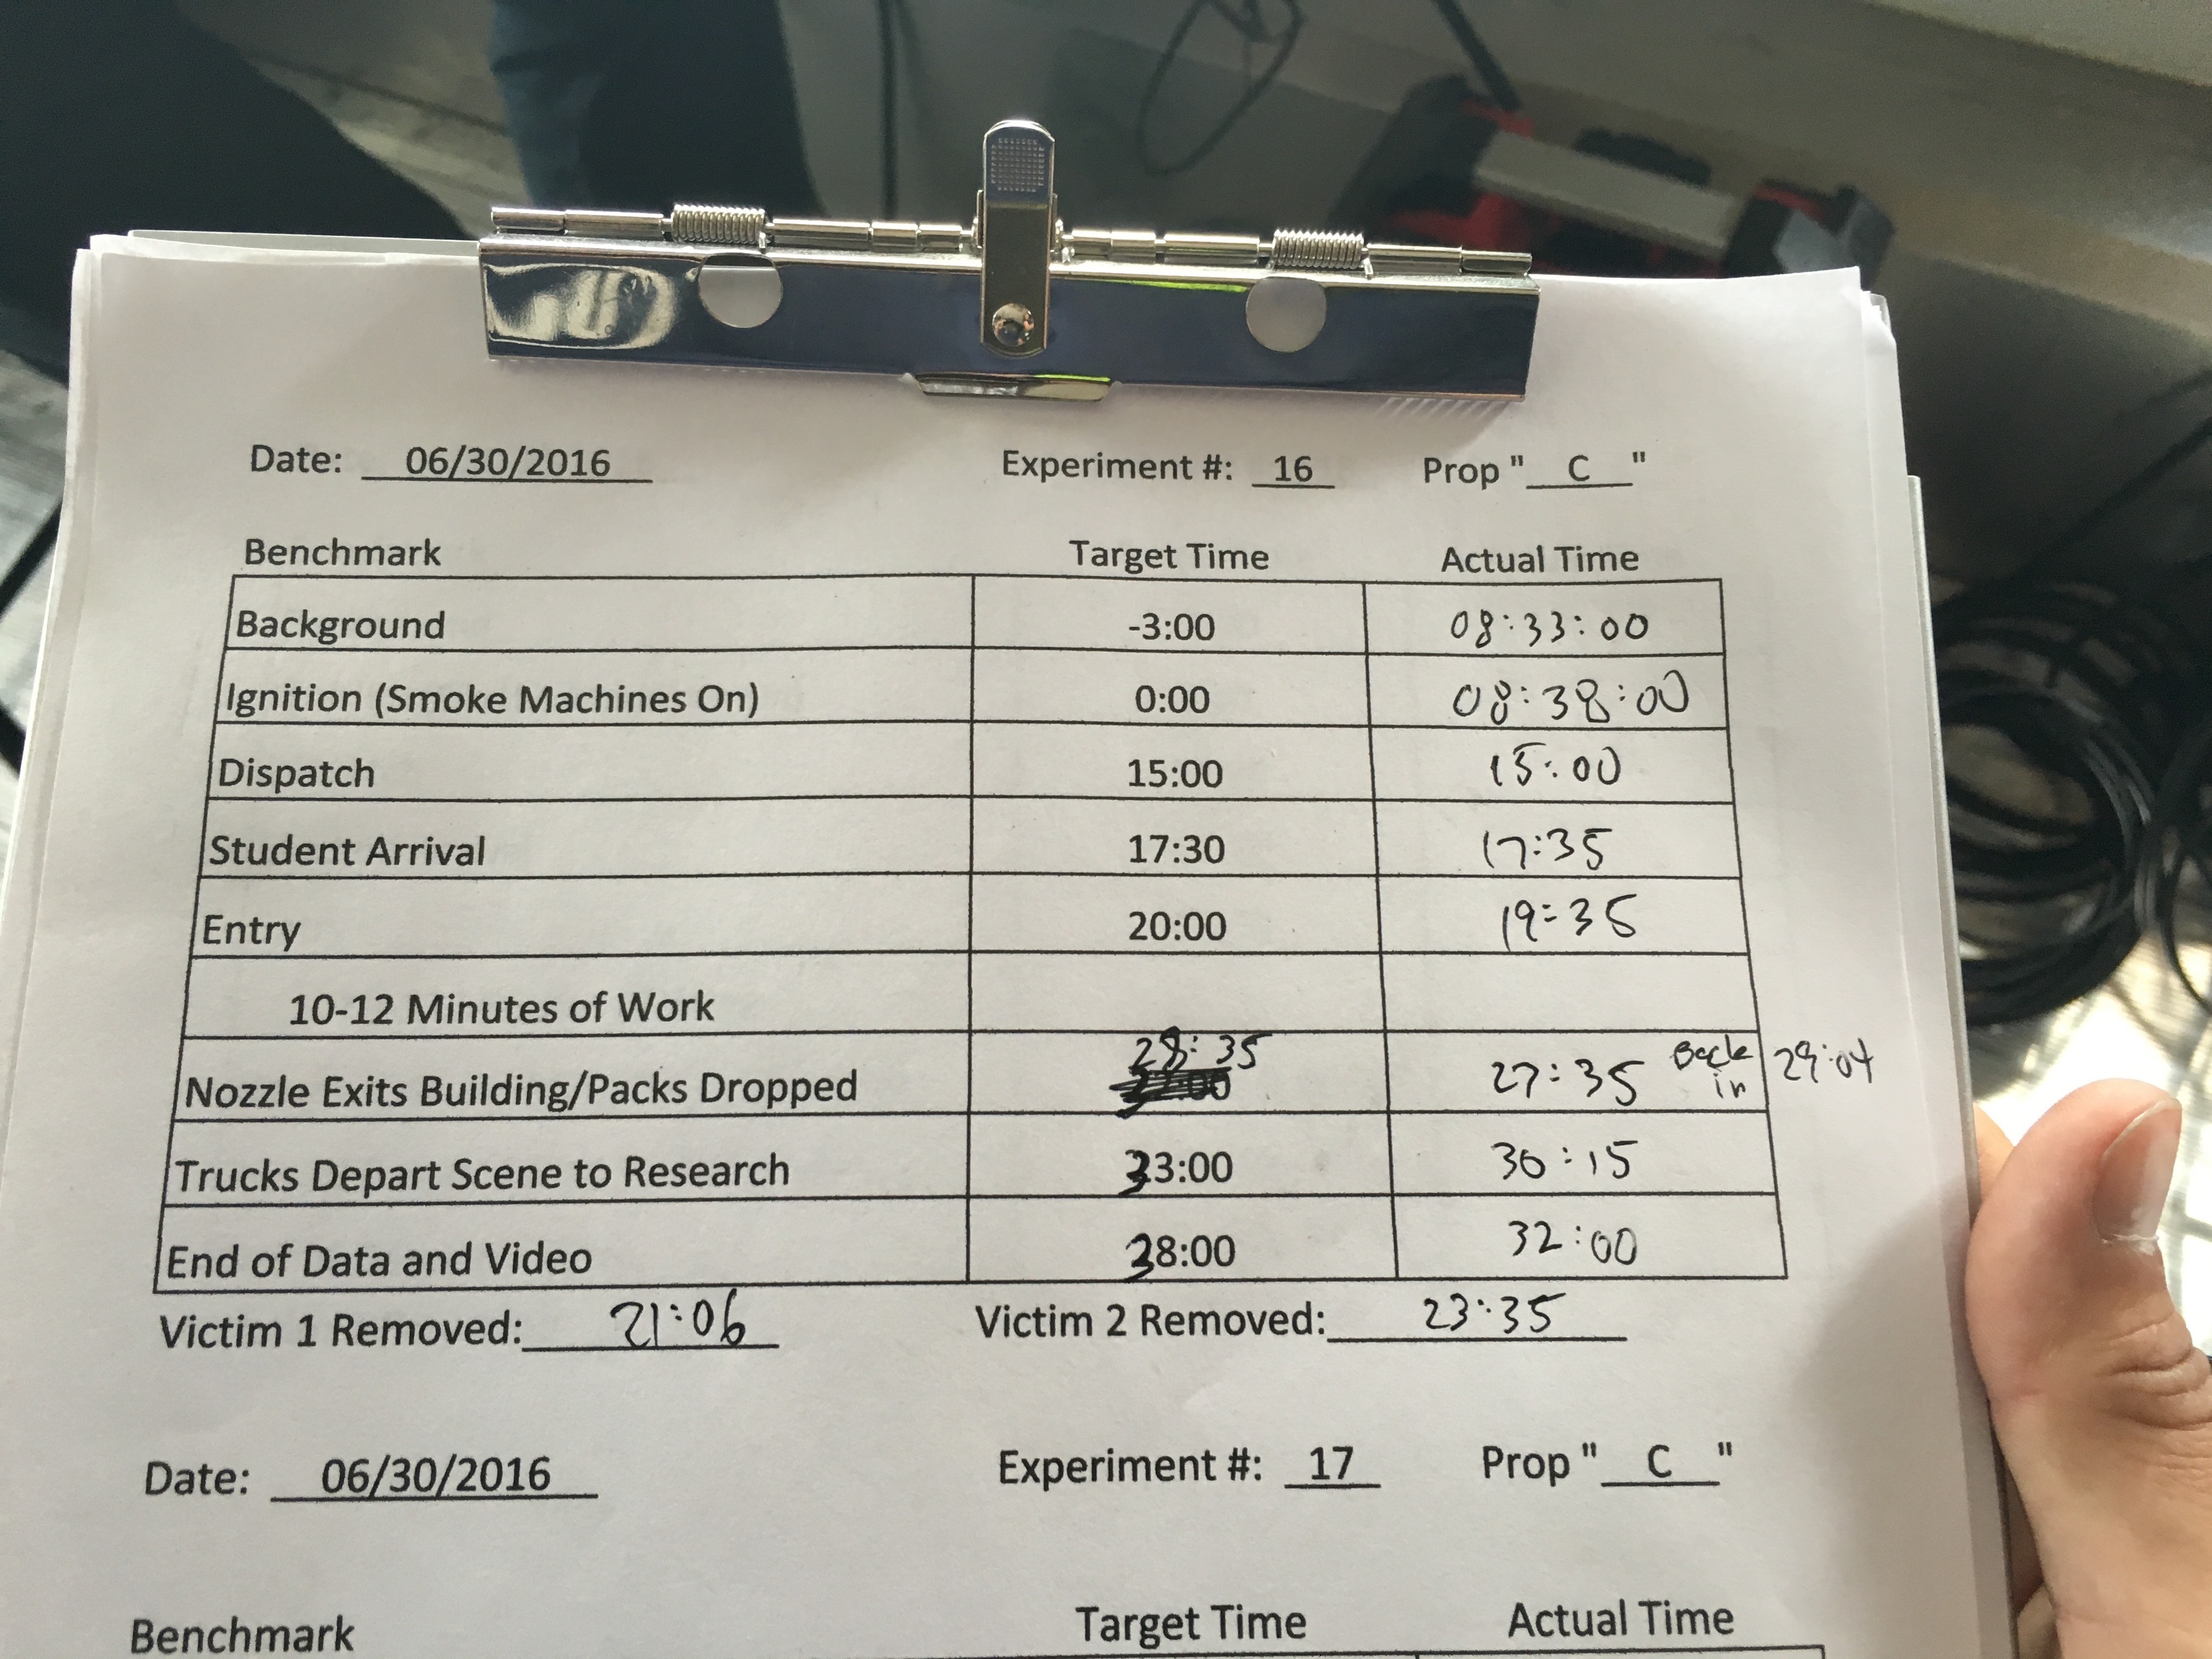 Date: 06/30/2016 Experiment #: 16 Prop " C "
Benchmark Target Time Actual Time
Background -3:00 08:33:00
Ignition (Smoke Machines On) 0:00 08:38:00
Dispatch 15:00 15:00
Student Arrival 17:30 17:35
Entry 20:00 19:35
10-12 Minutes of Work
28:35
Nozzle Exits Building/Packs Dropped 27:35 Back in 29:04
Trucks Depart Scene to Research 33:00 30:15
End of Data and Video 38:00 32:00
Victim 1 Removed: 21:06 Victim 2 Removed: 23:35
Date: 06/30/2016 Experiment #: 17 Prop " C "
Benchmark Target Time Actual Time